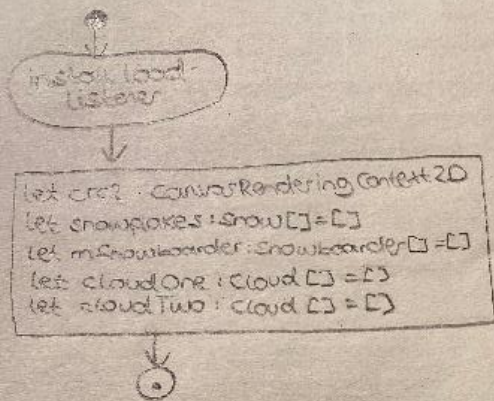 install load-
Listener
let crc2 : CanvasRenderingContext2D
let snowflakes : Snow[] = []
let mSnowboarder : Snowboarder[] = []
let cloudOne : Cloud [] = []
let cloudTwo : Cloud [] = []